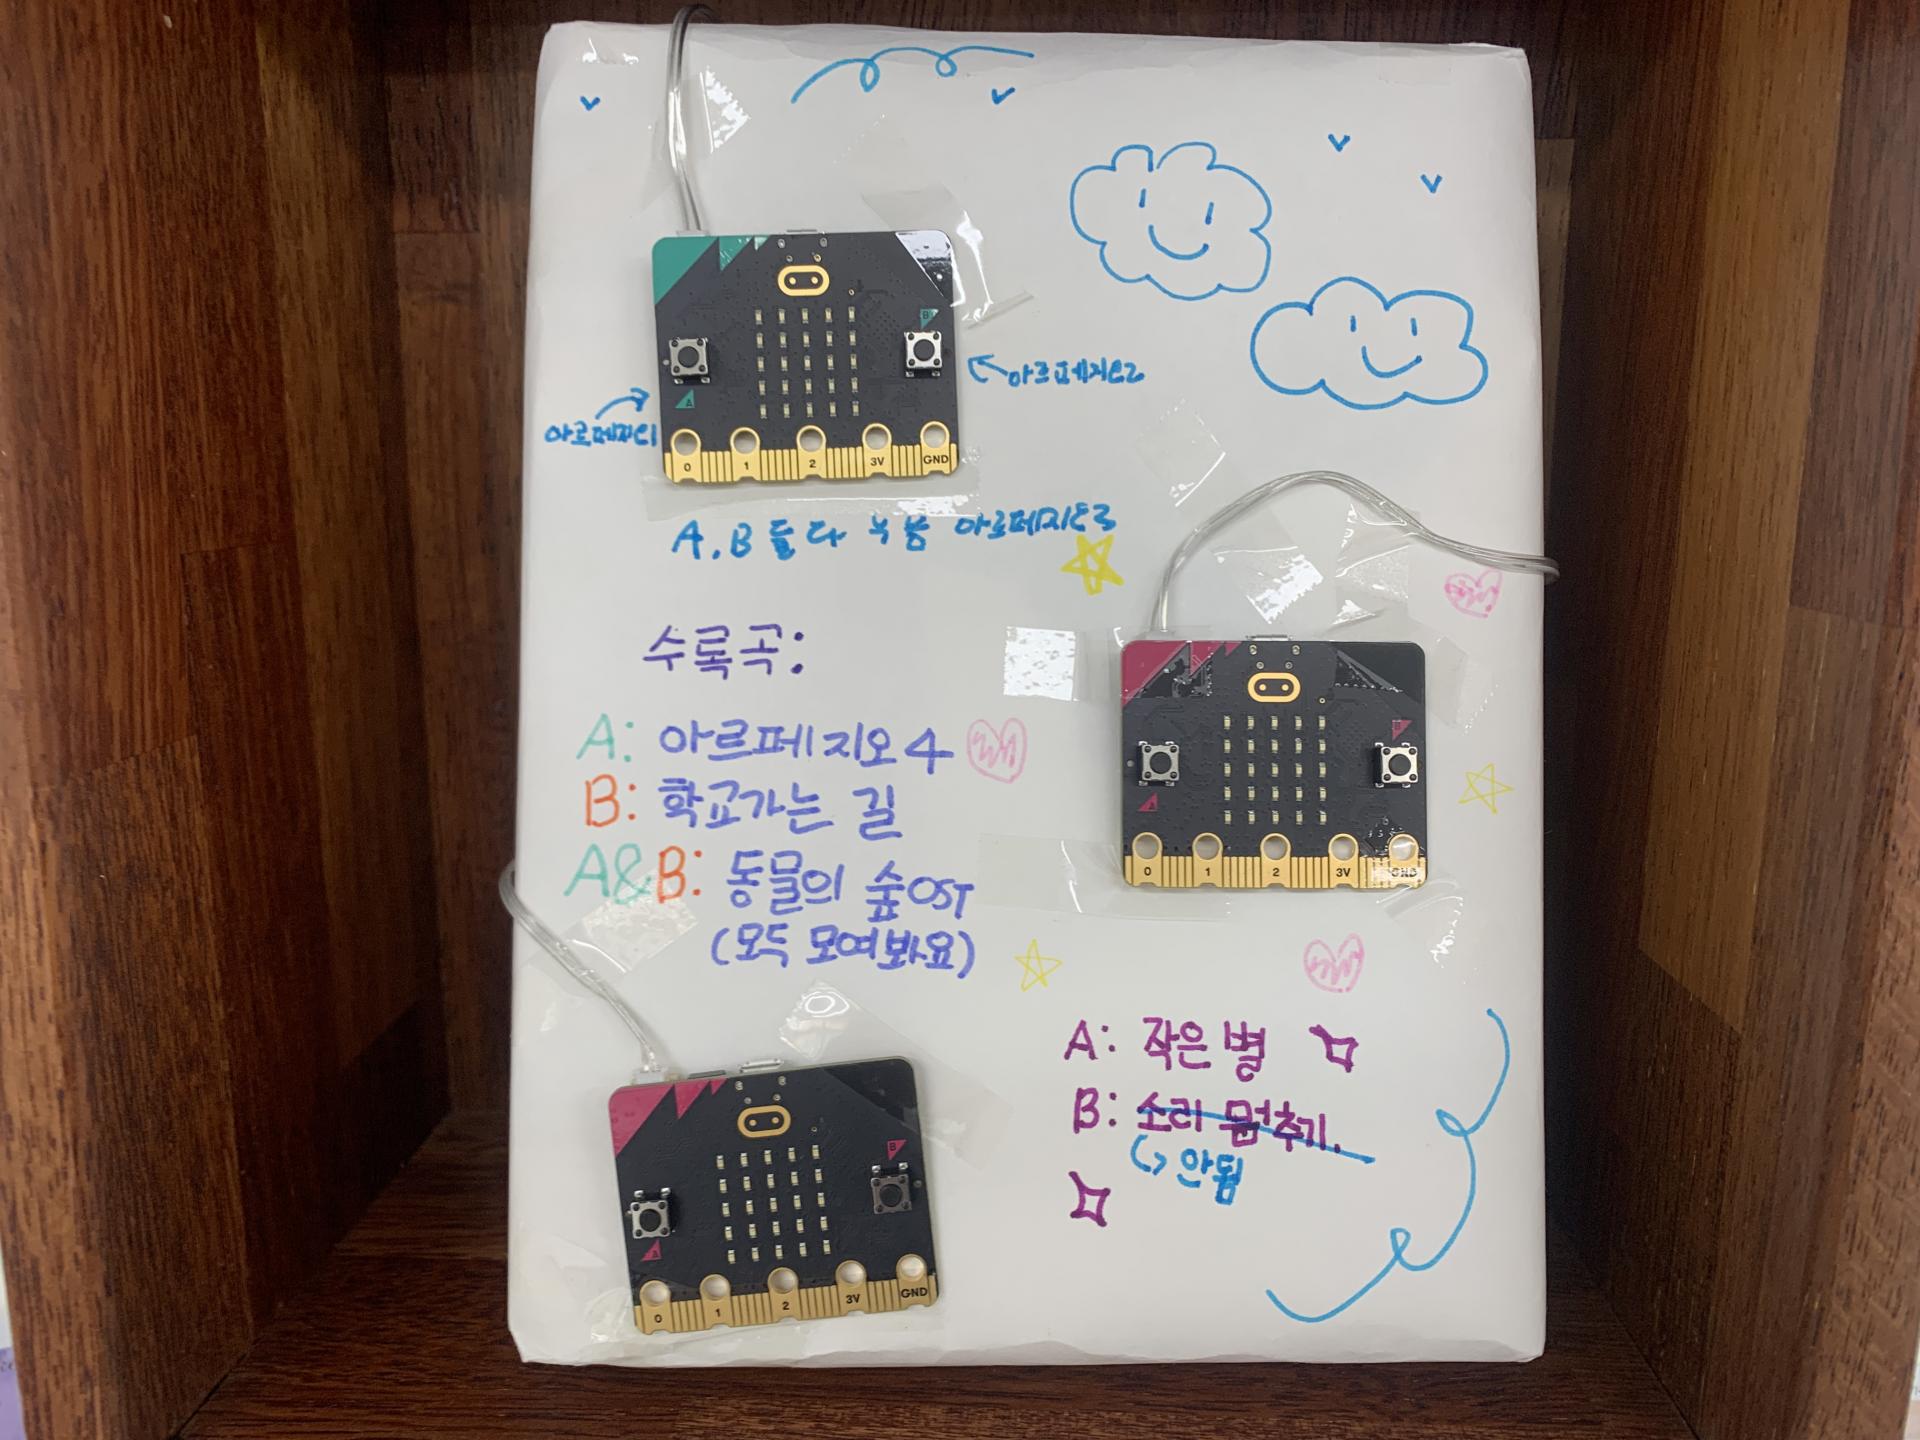 B
A
0 1 2 3V GND
아르페지오2
아르페지오1
A,B 둘다 누름 아르페지오3
수록곡:
A: 아르페지오4
B: 학교가는 길
A&B: 동물의 숲OST
(모두 모여봐요)
B
A
0 1 2 3V GND
A: 작은별
B: 소리 멈추기.
안됨
B
A
0 1 2 3V GND